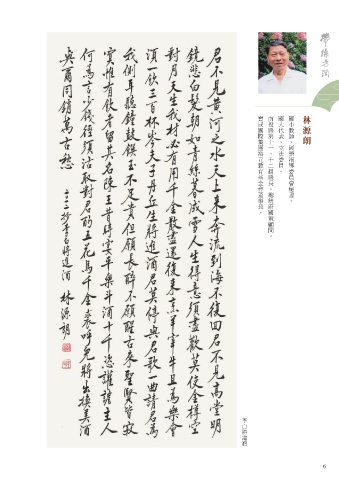 林源朗
國大代表、立法委員、
南投縣第十一、十二屆縣長、總統府國策顧問、
君不見黃河之水天上來奔流到海不復回君不見高堂明
鏡悲白髮朝如青絲暮成雪人生得意須盡歡莫使金樽空
對月天生我材必有用千金散盡還復來烹羊宰牛且為樂會
須一飲三百杯岑夫子丹丘生將進酒君莫停與君歌一曲請君為
我側耳聽鐘鼓饌玉不足貴但願長醉不願醒古來聖賢皆寂
寞惟有飲者留其名陳王昔時宴平樂斗酒十千恣讙謔主人
何為言少錢徑須沽取對君酌五花馬千金裘呼兒將出換美酒
與爾同銷萬古愁 抄李白將進酒 林源朗
李白將進酒
6